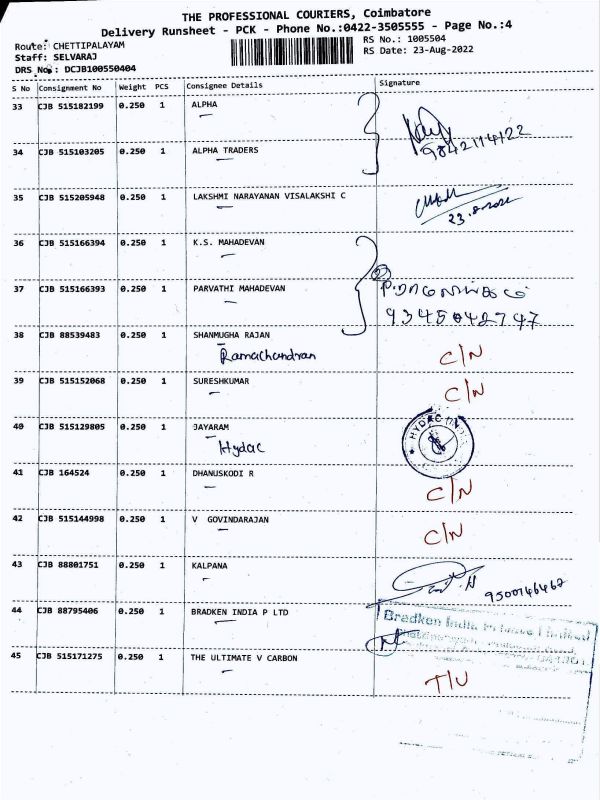 THE PROFESSIONAL COURIERS, Coimbatore
Delivery Runsheet - PCK - Phone No.:0422-3505555 - Page No.:4
Route: CHETTIPALAYAM
RS No.: 1005504
Staff: SELVARAJ
RS Date: 23-Aug-2022
DRS No.: DCJB100550404
S No Consignment No Weight PCS Consignee Details Signature
33 CJB 515182199 0.250 1 ALPHA
9842114122
34 CJB 515103205 0.250 1 ALPHA TRADERS
35 CJB 515205948 0.250 1 LAKSHMI NARAYANAN VISALAKSHI C
36 CJB 515166394 0.250 1 K.S. MAHADEVAN
37 CJB 515166393 0.250 1 PARVATHI MAHADEVAN
9345042747
38 CJB 88539483 0.250 1 SHANMUGHA RAJAN
Ramachandran C/N
39 CJB 515152068 0.250 1 SURESHKUMAR C/N
40 CJB 515129805 0.250 1 JAYARAM
Hydac HYDAC INDIA
41 CJB 164524 0.250 1 DHANUSKODI R C/N
42 CJB 515144998 0.250 1 V GOVINDARAJAN C/N
43 CJB 88801751 0.250 1 KALPANA
9500746467
44 CJB 88795406 0.250 1 BRADKEN INDIA P LTD
Bradken India Private Limited
45 CJB 515171275 0.250 1 THE ULTIMATE V CARBON T/U